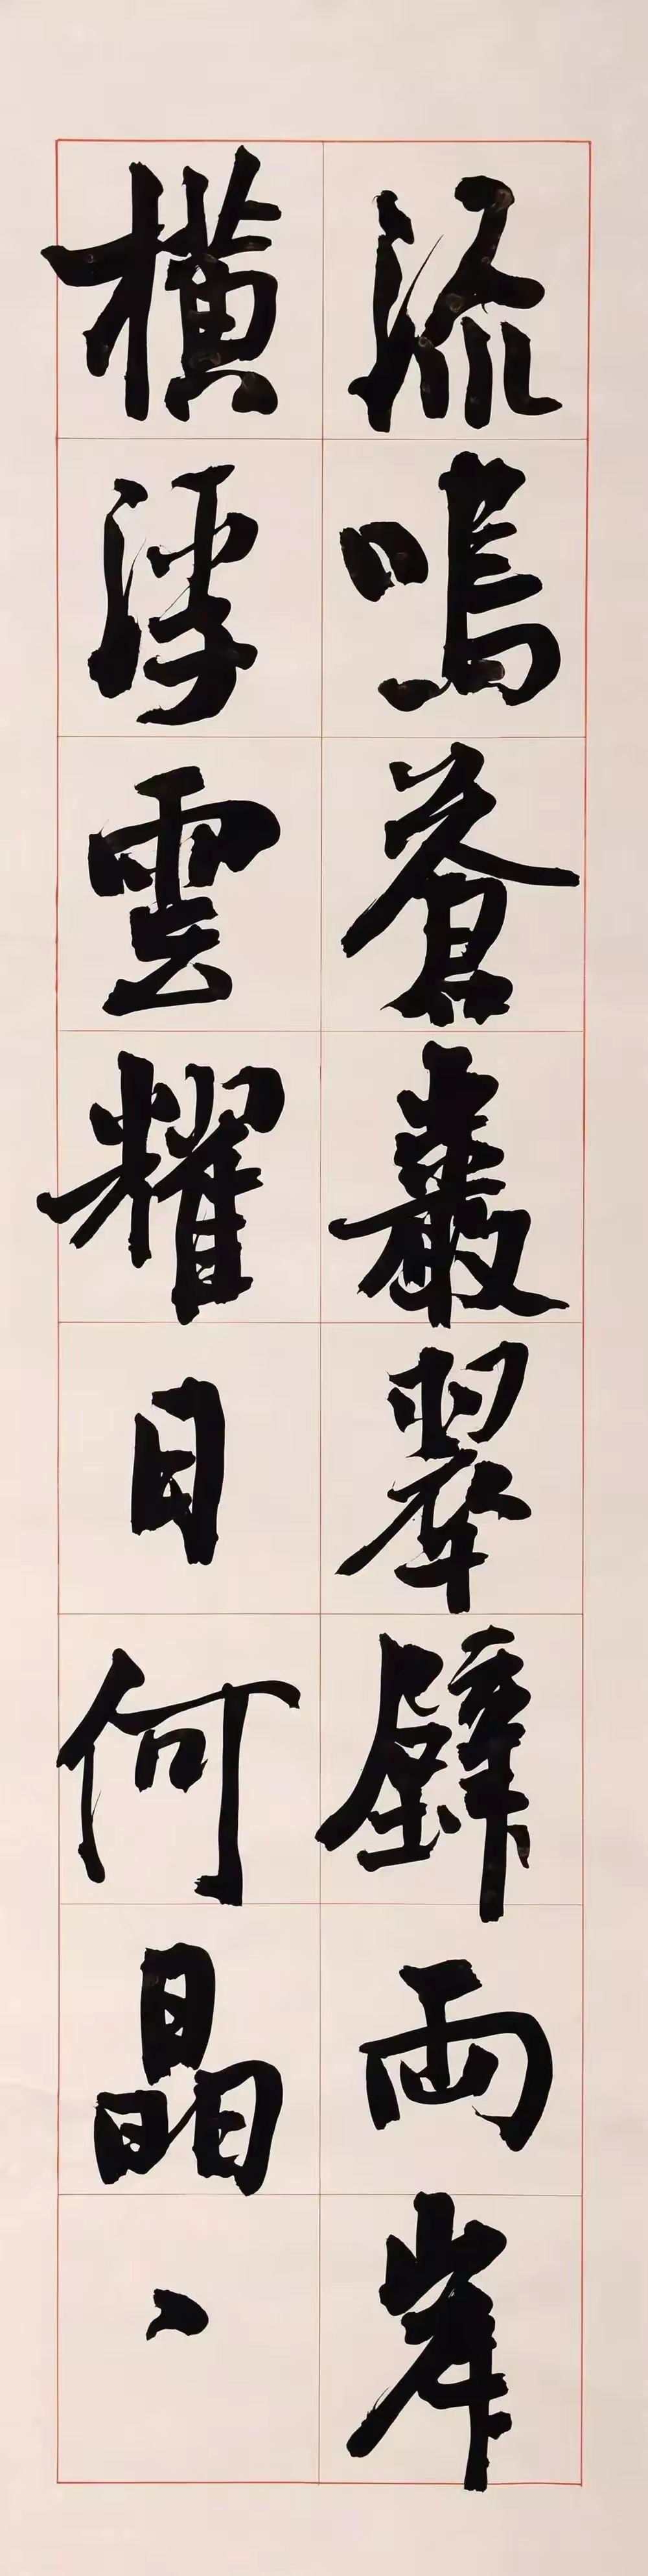 流鳴蒼叢翠壁兩岸
橫浮雲耀日何晶〻